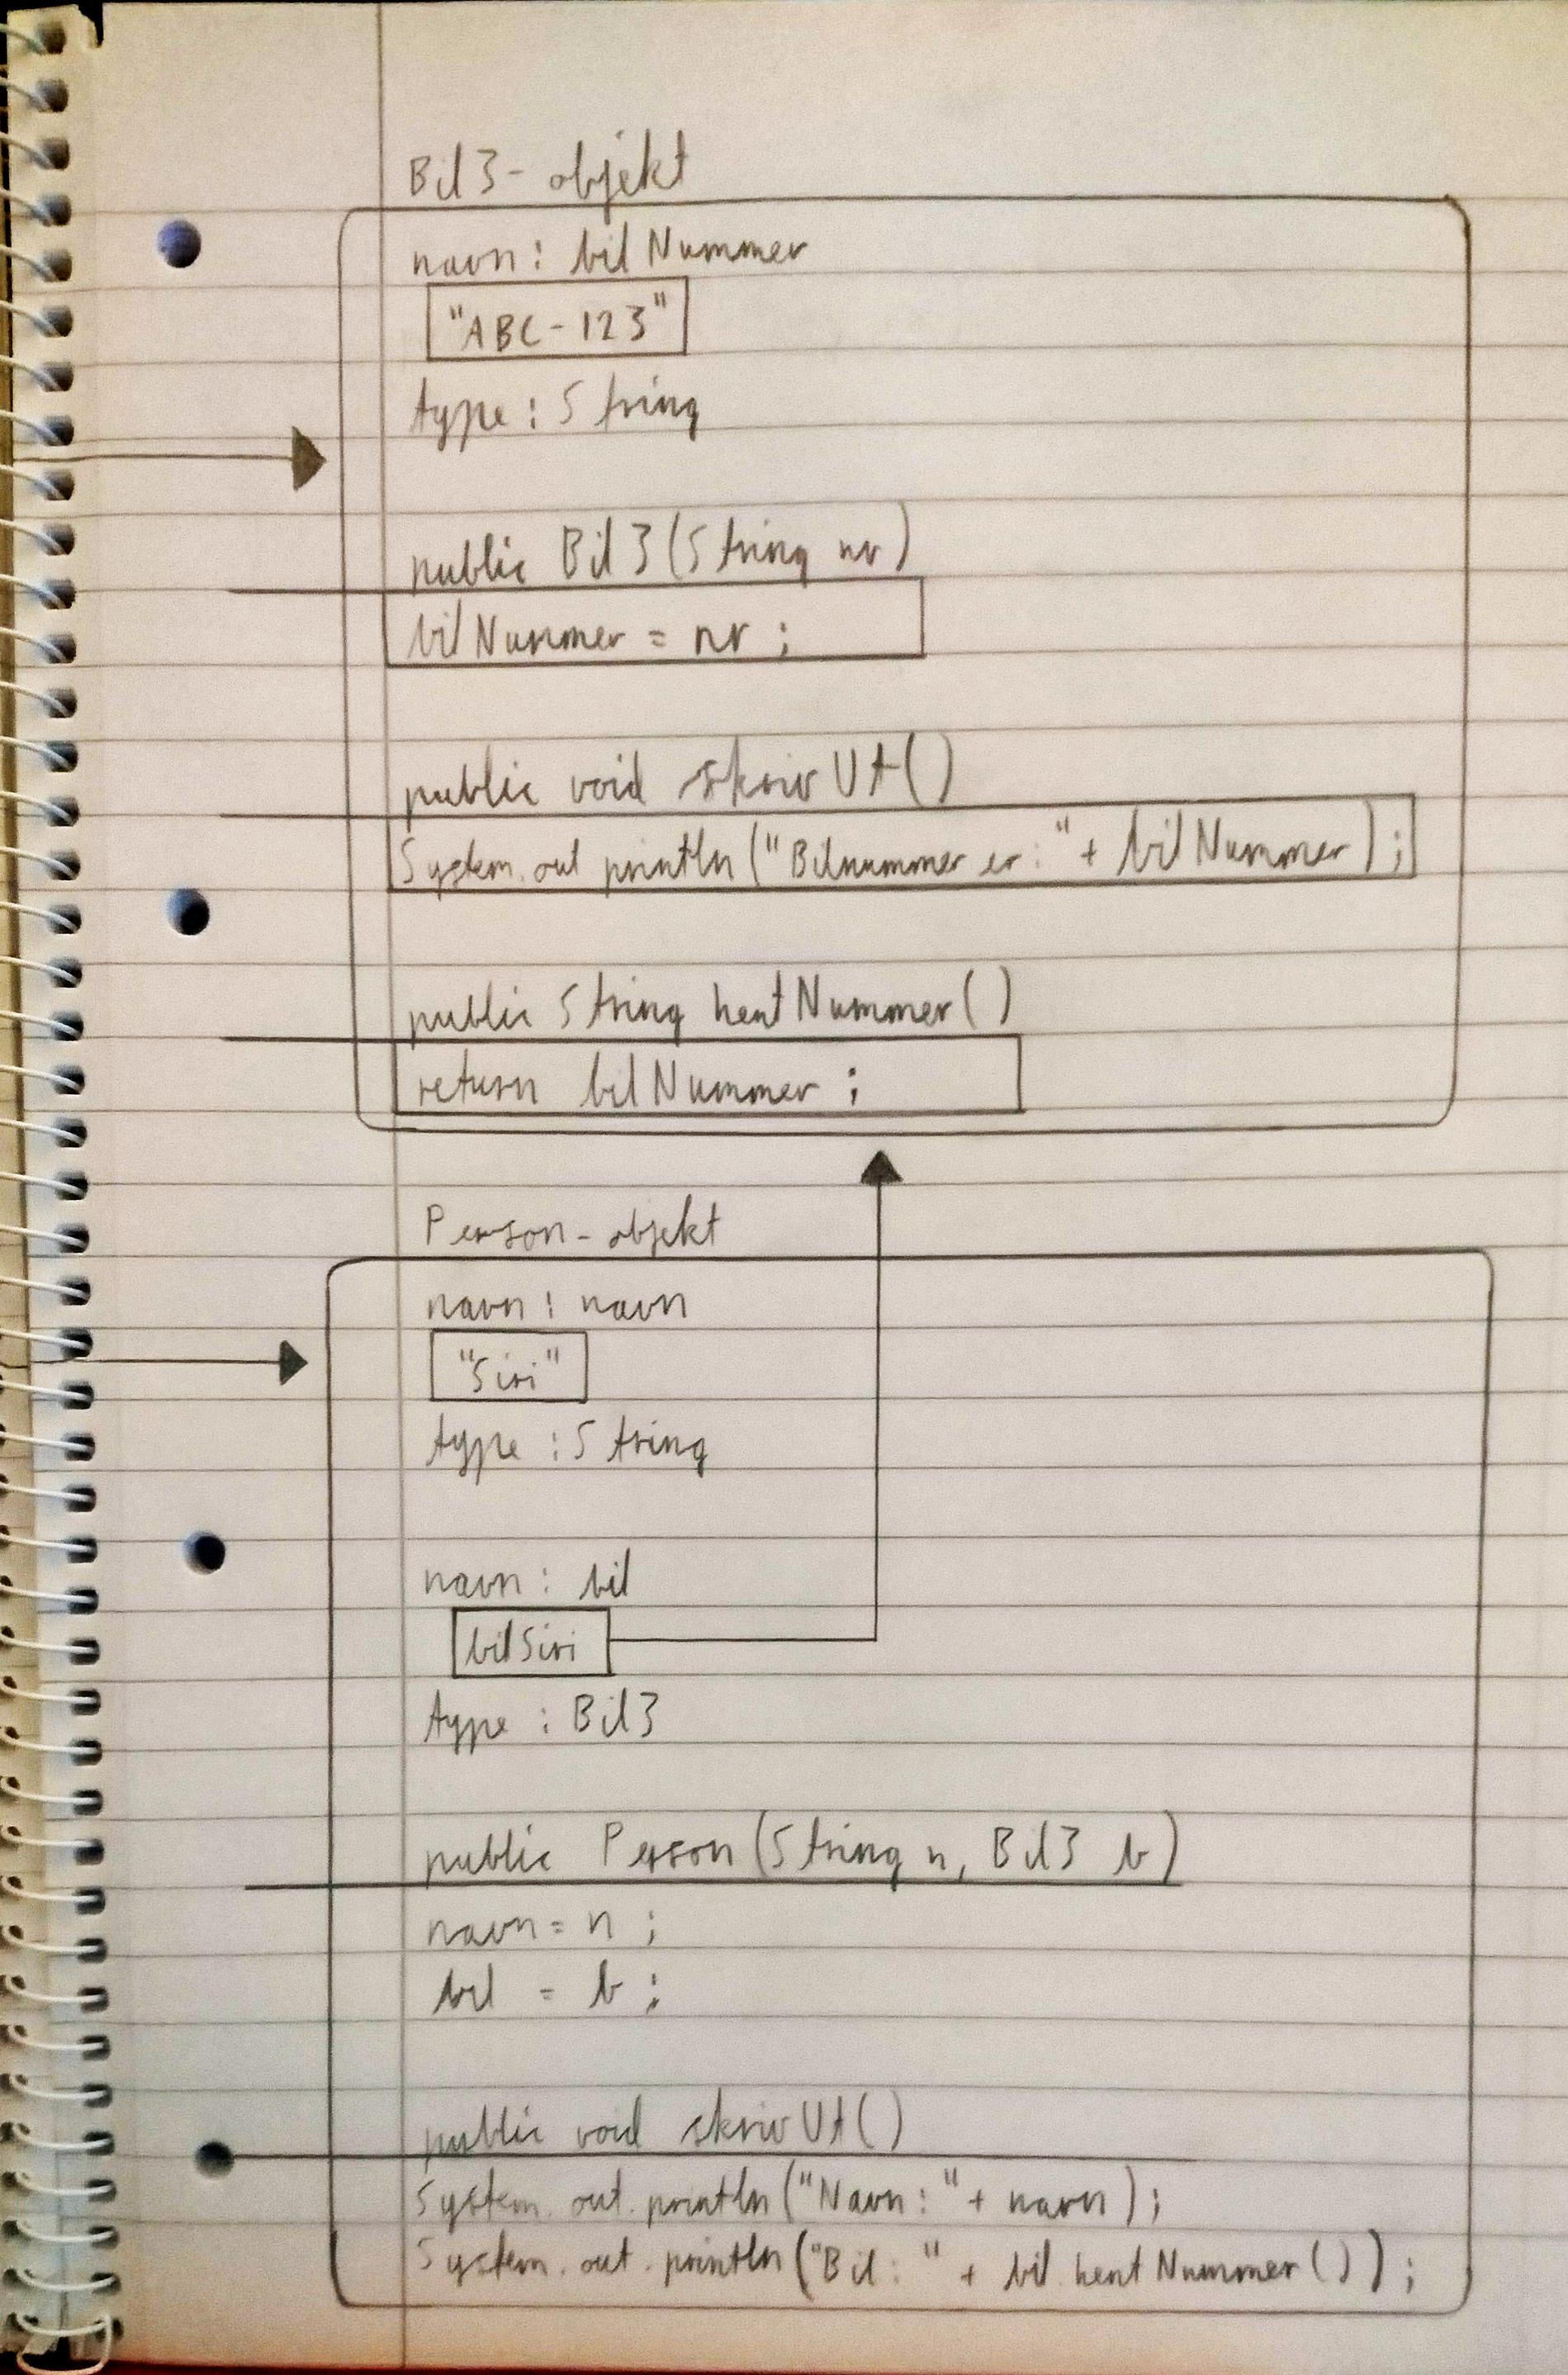 Bil3-objekt
navn: bilNummer
"ABC-123"
type: String
public Bil3(String nr)
bilNummer = nr;
public void skrivUt()
System.out.println("Bilnummer er: " + bilNummer);
public String hentNummer()
return bilNummer;
Person-objekt
navn: navn
"Siri"
type: String
navn: bil
bilSiri
type: Bil3
public Person(String n, Bil3 b)
navn = n;
bil = b;
public void skrivUt()
System.out.println("Navn: " + navn);
System.out.println("Bil: " + bil.hentNummer());